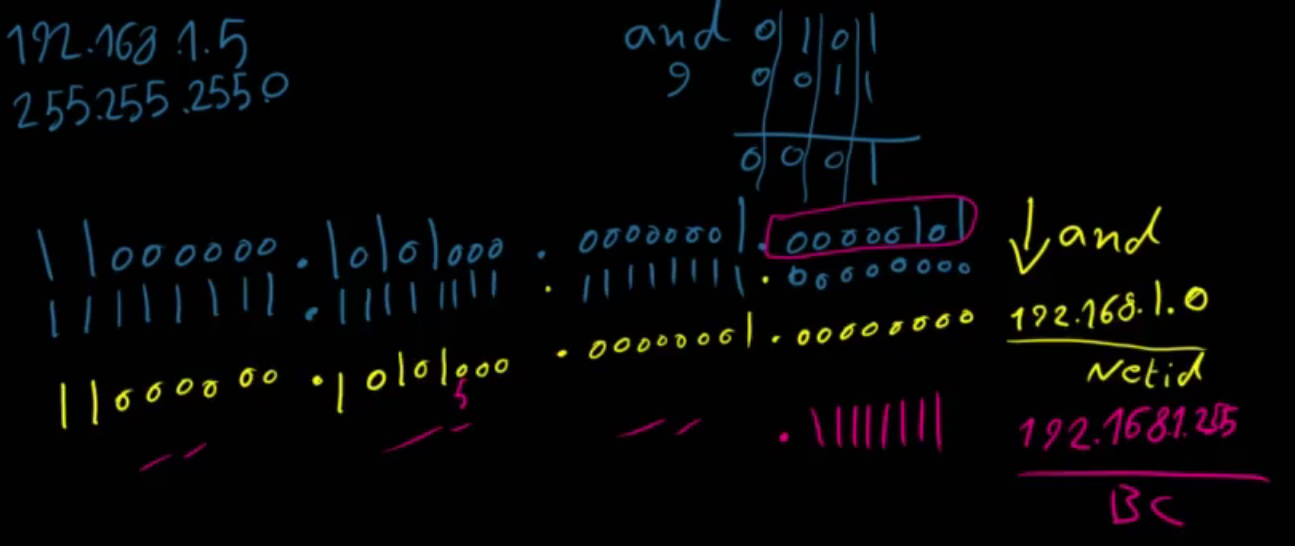 192.168.1.5
255.255.255.0
and 0 1 0 1
و 0 0 1 1
0 0 0 1
11000000.10101000.00000001.00000101
11111111.11111111.11111111.00000000
↓ and
11000000.10101000.00000001.00000000
192.168.1.0
Netid
.11111111
192.168.1.255
BC